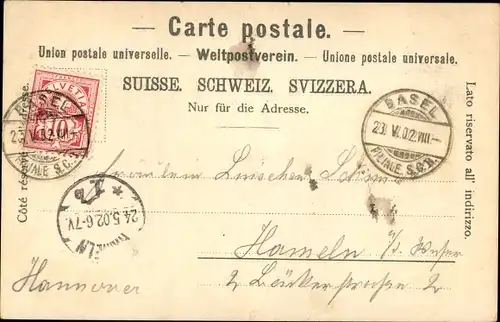 — Carte postale. —
Union postale universelle. — Weltpostverein. — Unione postale universale.
SUISSE. SCHWEIZ. SVIZZERA.
Nur für die Adresse.
Côté réservé à l'adresse.
Lato riservato all' indirizzo.
HELVETIA
10
BASEL
23.V.02.VIII—
FILIALE S.C.B.
BASEL
23.V.02.VIII—
FILIALE S.C.B.
24.5.02.6-7V.
Fräulein Luischen
Hameln a/d Weser
2 Bäckerstrasse 2
Hannover